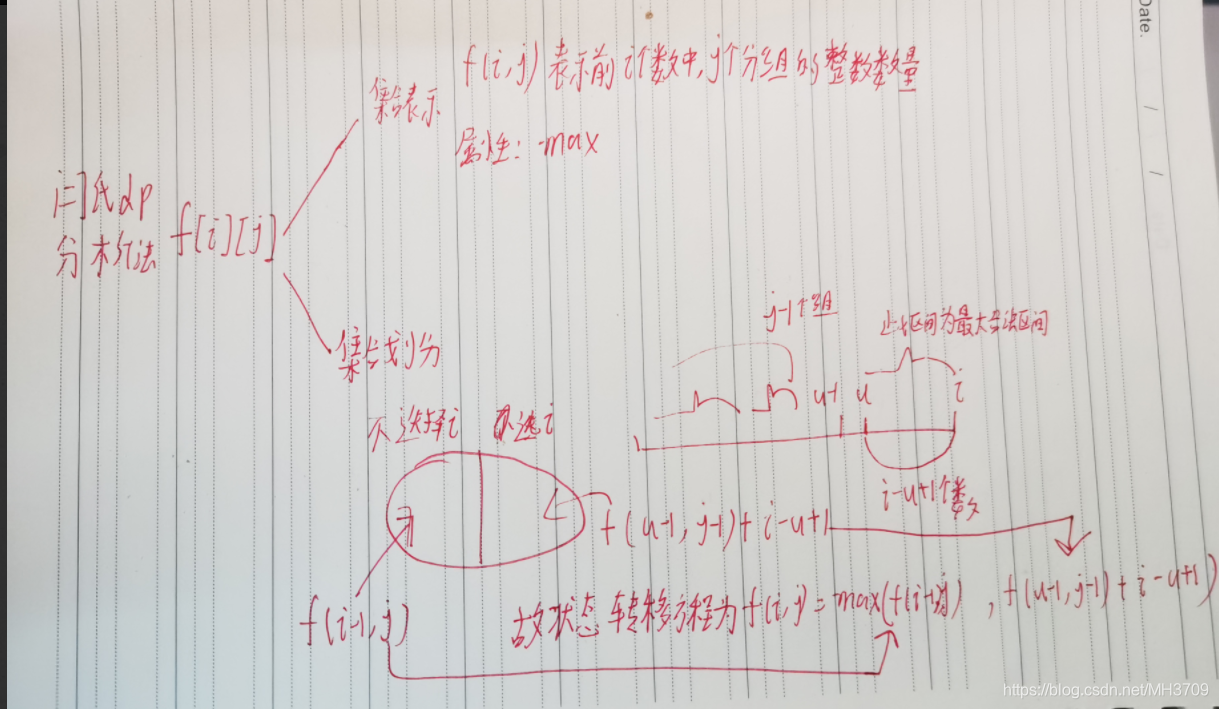 Date.
f(i,j)表示前i个数中,j个分组的整数数量
集合表示
属性:max
闫氏dp
分析法 f[i][j]
集合划分
j-1个组
此区间为最大合法区间
u-1 u i
不选择i 选i
i-u+1个数
f(u-1,j-1)+i-u+1
f(i-1,j)
故状态转移方程为f(i,j)=max(f(i-1,j),f(u-1,j-1)+i-u+1)
https://blog.csdn.net/MH3709